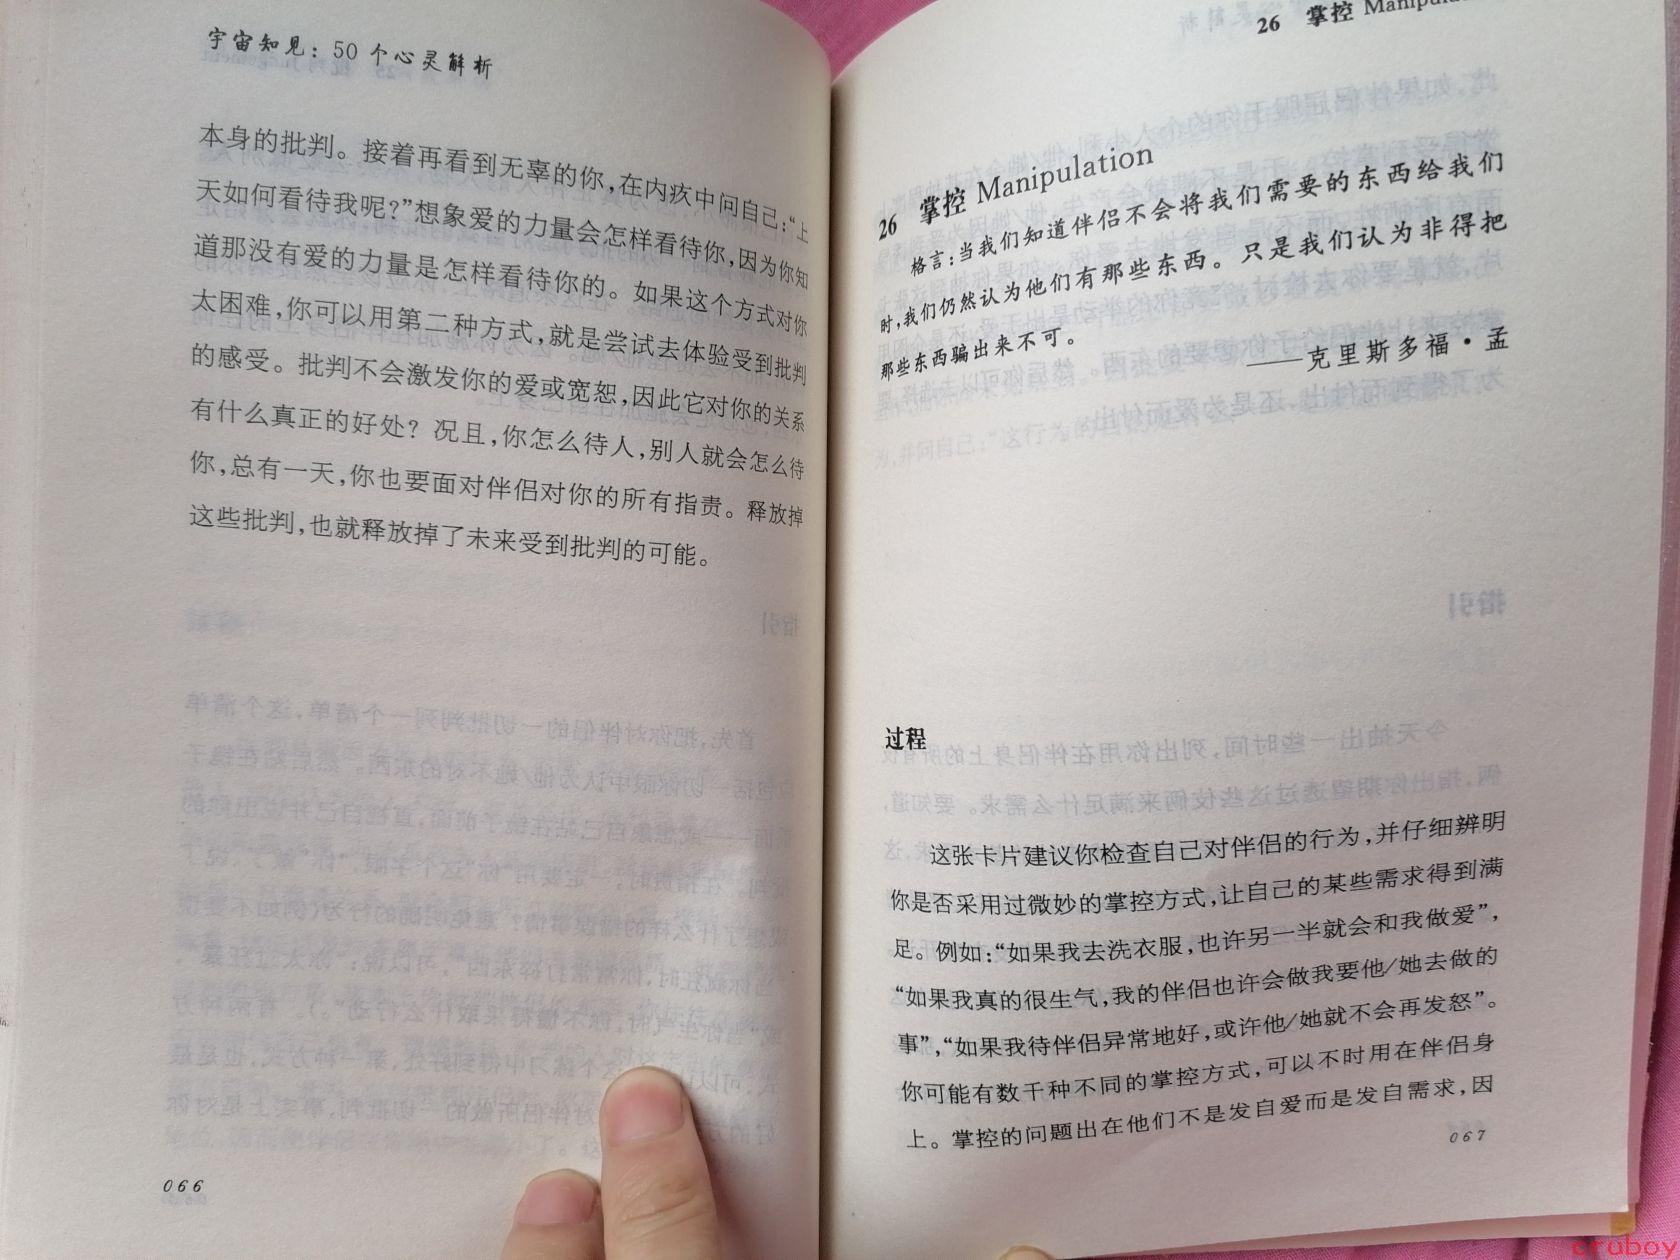 宇宙知见：50 个心灵解析
本身的批判。接着再看到无辜的你，在内疚中问自己：“上
天如何看待我呢？”想象爱的力量会怎样看待你，因为你知
道那没有爱的力量是怎样看待你的。如果这个方式对你
太困难，你可以用第二种方式，就是尝试去体验受到批判
的感受。批判不会激发你的爱或宽恕，因此它对你的关系
有什么真正的好处？况且，你怎么待人，别人就会怎么待
你，总有一天，你也要面对伴侣对你的所有指责。释放掉
这些批判，也就释放掉了未来受到批判的可能。
066
26 掌控
26 掌控 Manipulation
格言：当我们知道伴侣不会将我们需要的东西给我们
时，我们仍然认为他们有那些东西。只是我们认为非得把
那些东西骗出来不可。
——克里斯多福·孟
过程
这张卡片建议你检查自己对伴侣的行为，并仔细辨明
你是否采用过微妙的掌控方式，让自己的某些需求得到满
足。例如：“如果我去洗衣服，也许另一半就会和我做爱”，
“如果我真的很生气，我的伴侣也许会做我要他/她去做的
事”，“如果我待伴侣异常地好，或许他/她就不会再发怒”。
你可能有数千种不同的掌控方式，可以不时用在伴侣身
上。掌控的问题出在他们不是发自爱而是发自需求，因
067
cruboy